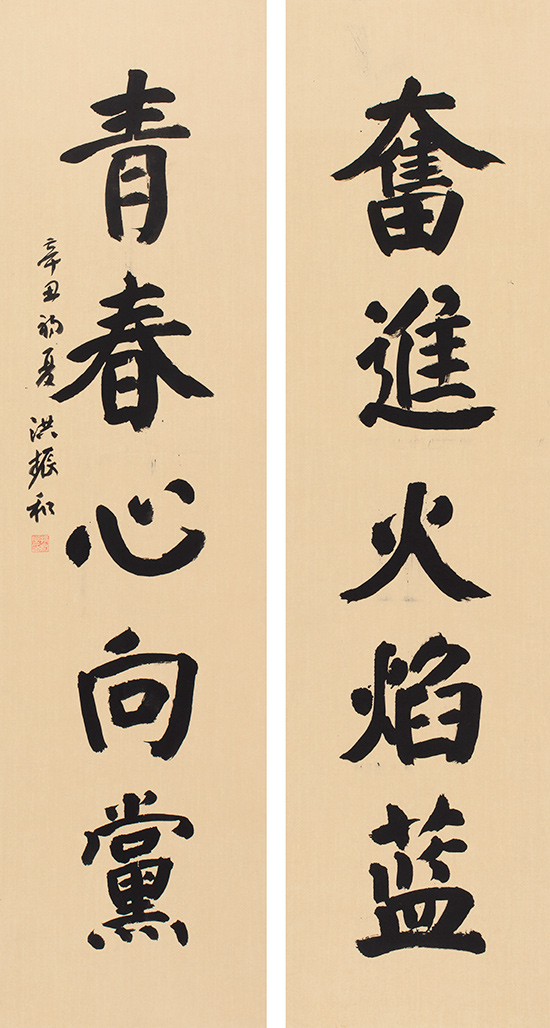 奮進火焰蓝
青春心向黨
辛丑初夏 洪振和